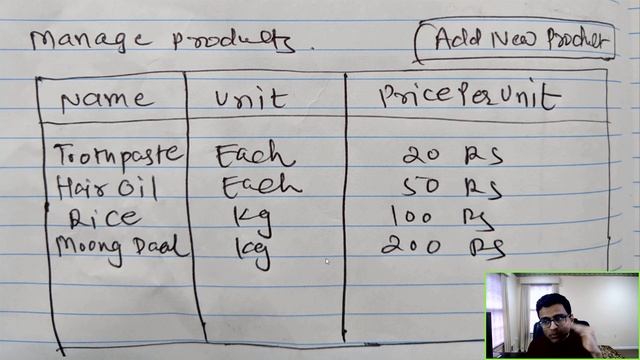 Manage products.
Add New Product
Name Unit PricePerUnit
Toothpaste Each 20 Rs
Hair Oil Each 50 Rs
Rice Kg 100 Rs
Moong Daal Kg 200 Rs